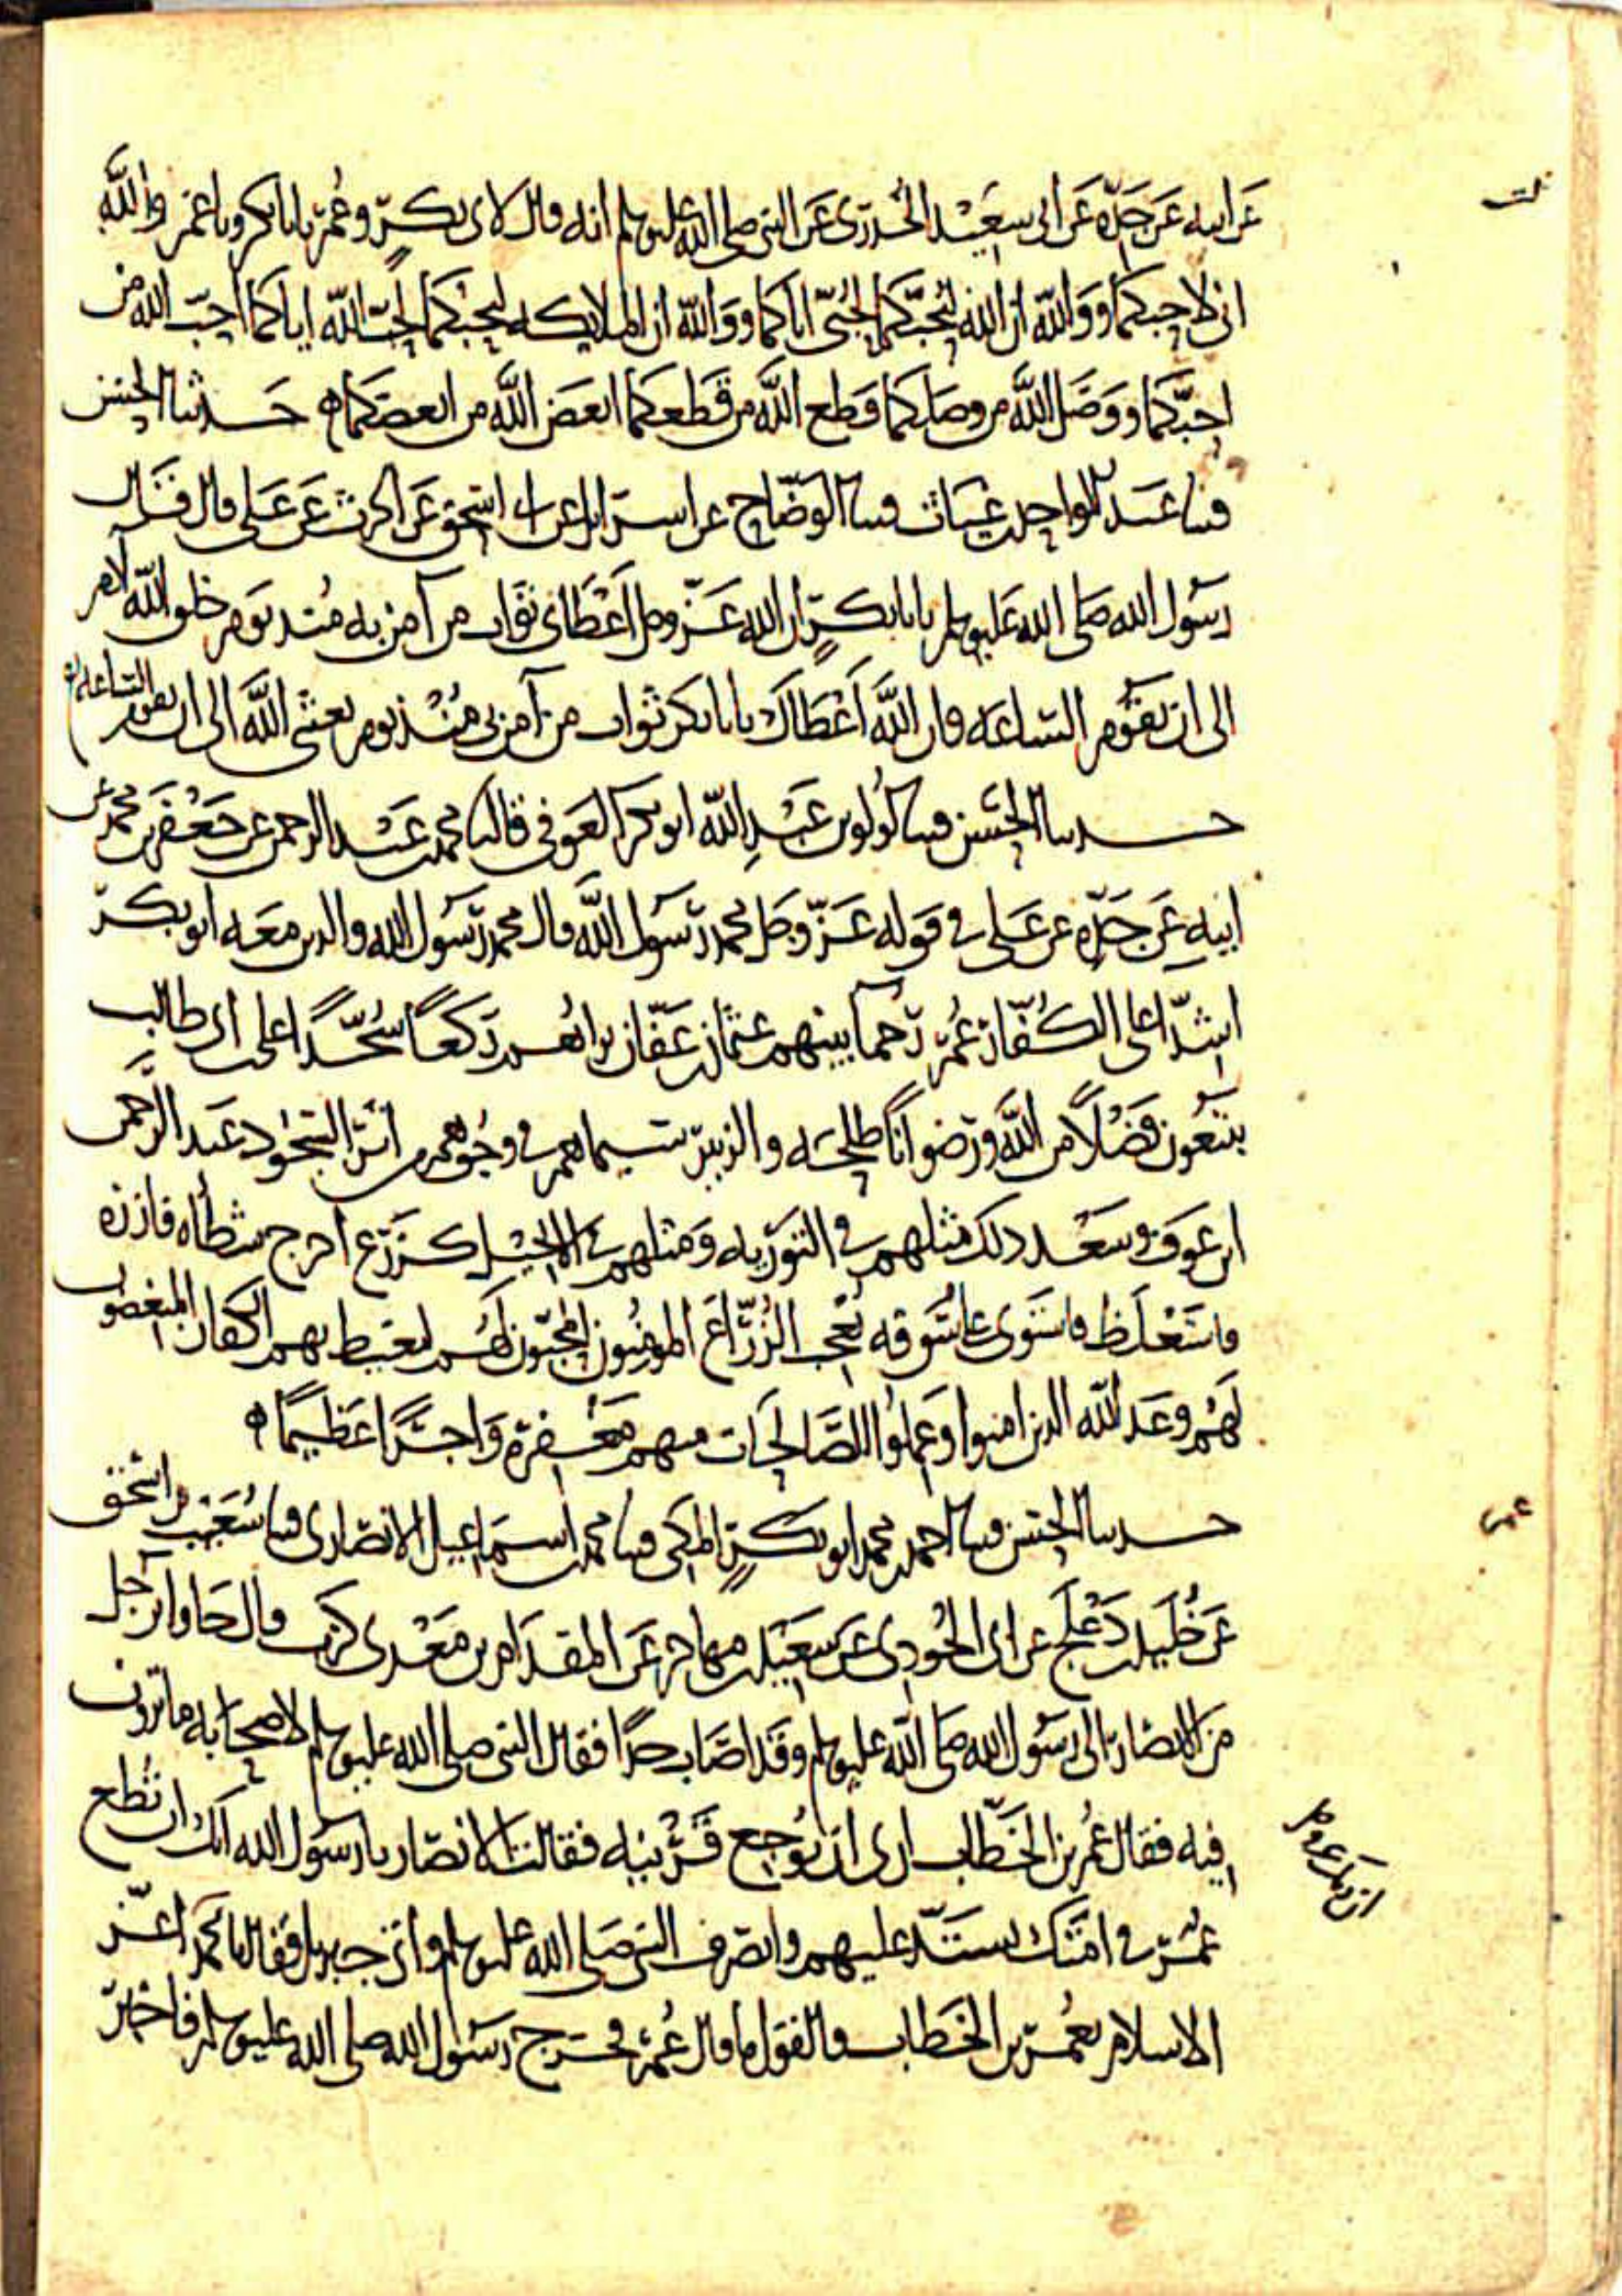 عن ابيه عن جده عن ابي سعيد الخدري عن النبي صلى الله عليه وسلم انه قال لابي بكر وعمر يا با بكر ويا عمر والله
اني لاحبكما ووالله ان الله ليحبكما لحبي اياكما ووالله ان الملايكه لتحبكما لحب الله اياكما احب الله من
احبكما ووصل الله من وصلكما قطع الله من قطعكما ابغض الله من ابغضكما ه حدثنا الحسن
قثنا عبد الواحد بن غياث قثنا الوضاح عن اسرايل عن ابي اسحق عن الحرث عن علي قال قال
رسول الله صلى الله عليه وسلم يا با بكر ان الله عز وجل اعطاني ثواب من آمن به منذ يوم خلق الله آدم
الى ان تقوم الساعه وان الله اعطاك يا با بكر ثواب من آمن بي منذ يوم بعثني الله الى ان تقوم الساعه ه
حدثنا الحسن قثنا لولو بن عبد الله ابو بكر العوفي قال ثنا محمد بن عبد الرحمن عن جعفر بن محمد عن
ابيه عن جده عن علي في قوله عز وجل محمد رسول الله قال محمد رسول الله والذين معه ابو بكر
اشدا على الكفار عمر رحما بينهم عثمان بن عفان تراهم ركعا سجدا علي بن ابي طالب
يبتغون فضلا من الله ورضوانا طلحه والزبير سيماهم في وجوههم من اثر السجود عبد الرحمن
ابن عوف وسعد ذلك مثلهم في التوريه ومثلهم في الانجيل كزرع اخرج شطأه فازره
فاستغلظ فاستوى على سوقه يعجب الزراع المومنون المحبون لهم ليغيظ بهم الكفار المبغضون
لهم وعد الله الذين امنوا وعملوا الصالحات منهم مغفرة واجرا عظيما ه
حدثنا الحسن قثنا احمد بن محمد ابو بكر المكي قثنا محمد بن اسماعيل الانصاري قثنا شعيب بن اسحق
عن خليد بن دعلج عن ابي الجودي عن سعيد بن مهاجر عن المقدام بن معدي كرب قال جاوا برجل
من الانصار الى رسول الله صلى الله عليه وسلم وقد اصاب حدا فقال النبي صلى الله عليه وسلم لاصحابه ما ترون
فيه فقال عمر بن الخطاب ارى ان توجع قرنيه فقالت الانصار يا رسول الله انك ان تطع
عمر في امتك يستد عليهم وانصرف النبي صلى الله عليه وسلم واتى جبريل فقال يا محمد اعز
الاسلام بعمر بن الخطاب والقول ما قال عمر فخرج رسول الله صلى الله عليه وسلم فاخبر